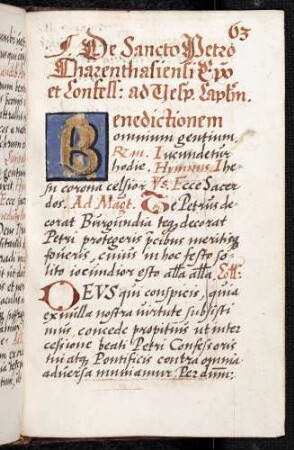 63
De Sancto Petro
Tharenthasiensi Ep̄o
et Confess: ad Vesp. Capl̄m.
Benedictionem
omnium gentium.
Rm. Iucundetur
hodie. Hymnus. Ihe-
su corona celsior. Vs. Ecce Sacer-
dos. Ad Magt. Te Petrus de-
corat Burgundia teq̨ decorat
Petri protegeris p̄cibus meritisq̨
foveris, cuius in hoc festo so-
lito iocundior esto alla alla. Coll:
DEUS qui conspicis, quia
ex nulla nostra virtute subsisti-
mus, concede propitius ut inter-
cessione beati Petri Confessoris
tui atq̨ Pontificis contra omnia
adversa muniamur. Per dn̄m: